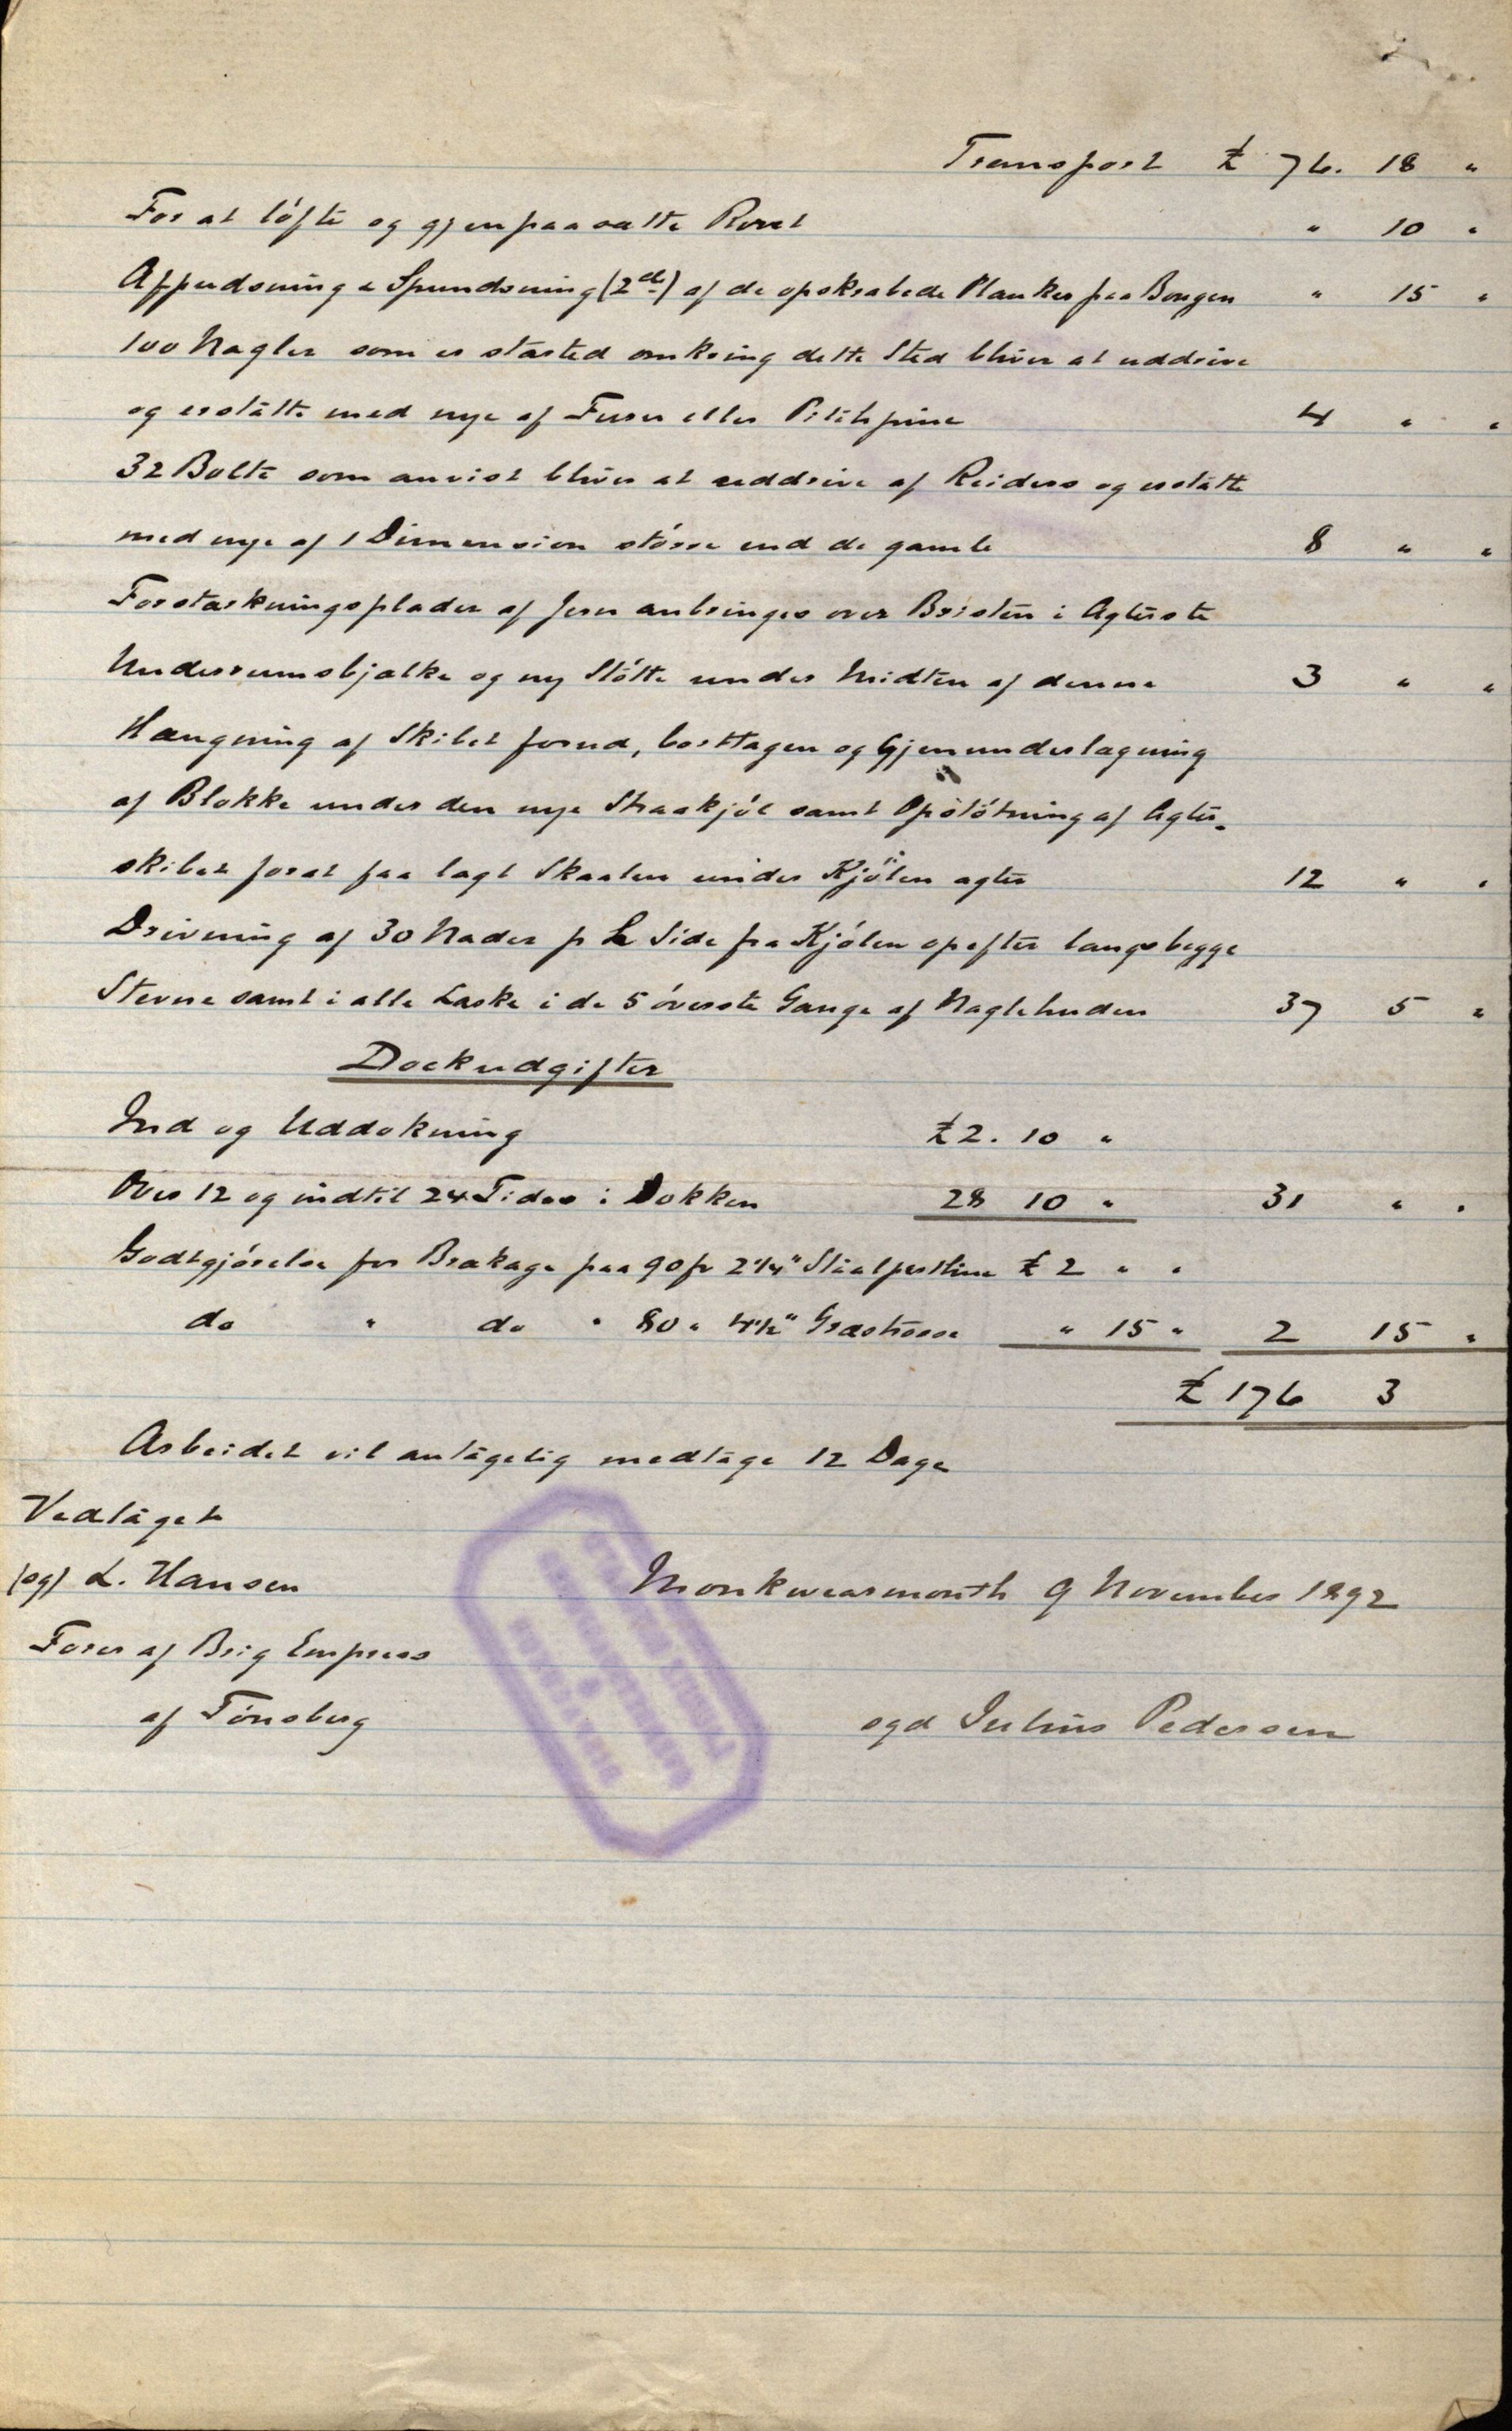 Transport £ 76. 18 "
For at löfte og gjenpaasatte Roret " 10 "
Afpudsning & Spundsning (2de) af de opskrabede Planker paa Bougen " 15 "
100 Nagler som er stærted omkring dette Sted bliver at uddrive
og erstatte med nye af Furu eller Pitchpine 4 " "
32 Bolte som anvist bliver at uddrive af Reiders og erstatte
med nye af 1 Dimension större end de gamle 8 " "
Forstærkningsplader af Jern anbringes over Bristen i Agterste
Underrumsbjælke og ny Stötte under Midten af denne 3 " "
Hængning af Skibet forud, borttagen og Gjenunderlægning
af Blokke under den nye Straakjöl samt Opslötning af Agter-
skibet forat faa lagt Skaalen under Kjölen agter 12 " "
Drivning af 30 Nader p Side fra Kjölen opefter langs begge
Stevne samt i alle Laske i de 5 överste Gange af Naglehuden 37 5 "
Dockudgifter
Ind og Uddokning £ 2. 10 "
Over 12 og indtil 24 Tides i Dokken 28 10 " 31 " "
Godtgjörelse for Brækage paa 90 fv 2 1/4" Staalpertline £ 2 " "
do " do " 80 " 4 1/2" Græstrosse " 15 " 2 15 "
£ 176 3
Arbeidet vil antagelig medtage 12 Dage
Vedtaget
(sg) L. Hansen
Monkwearmouth 9 November 1892
Förer af Brig Empress
af Tönsberg
sgd Julius Pedersen